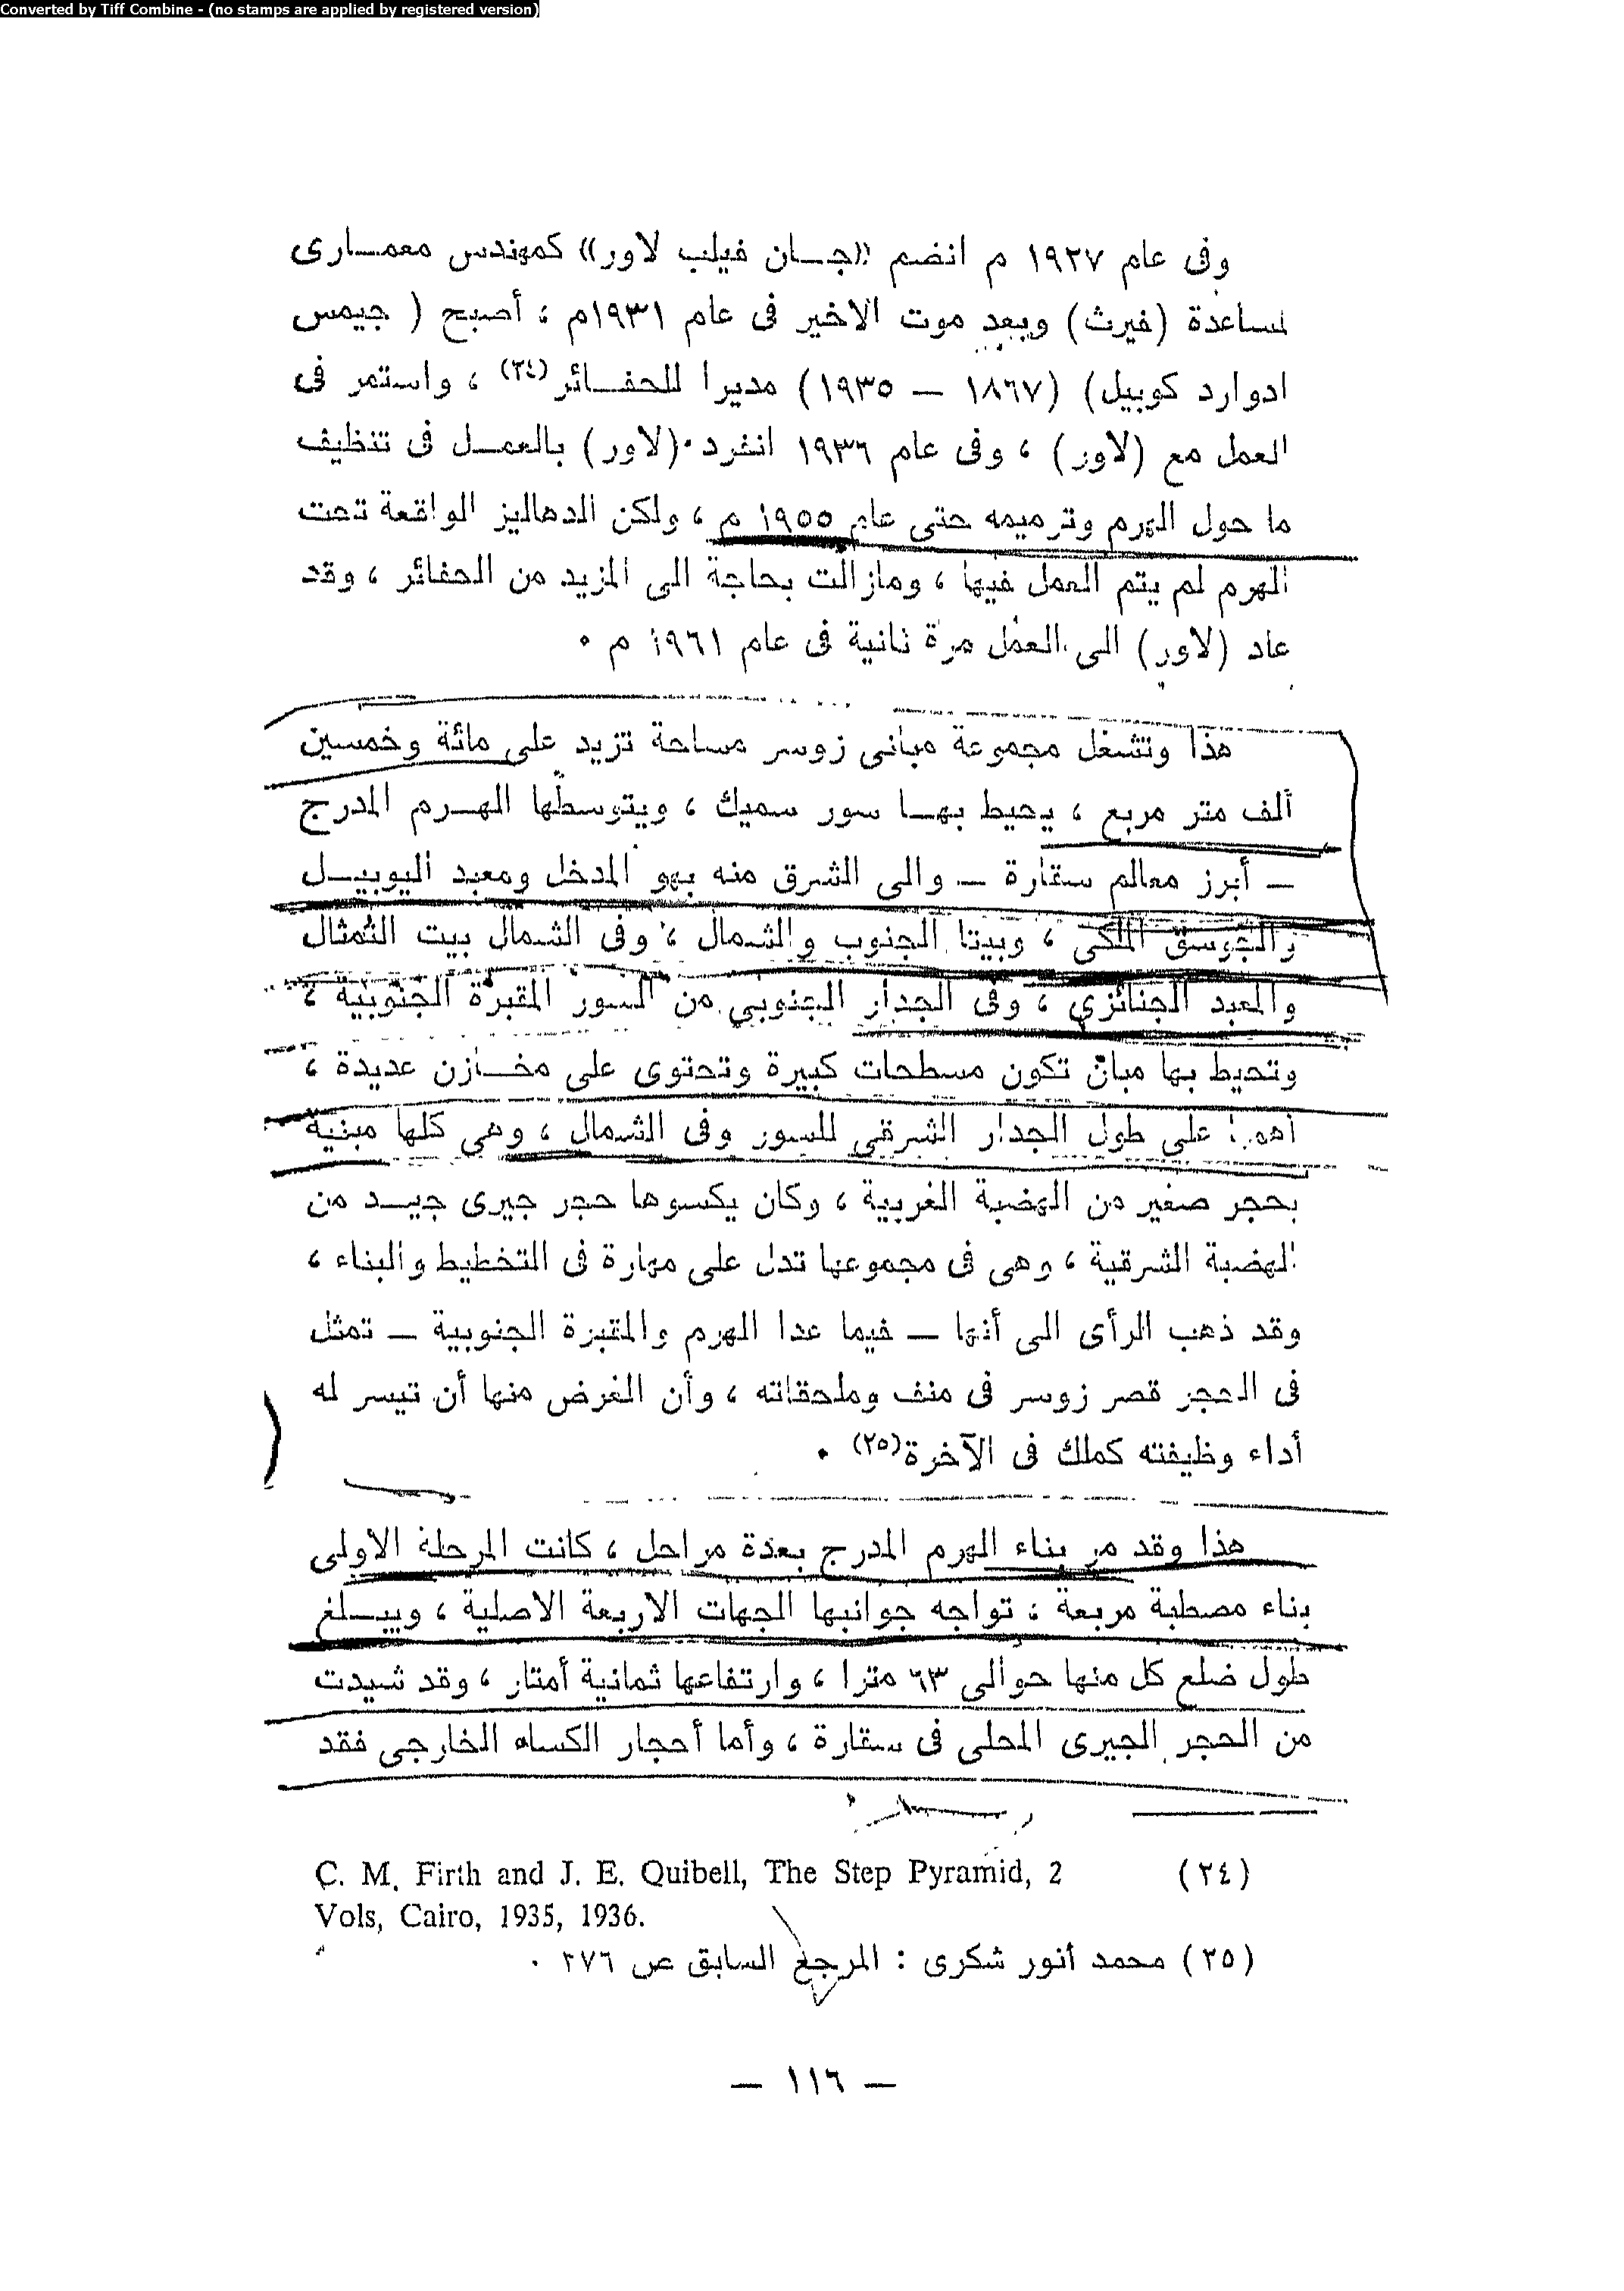 Converted by Tiff Combine - (no stamps are applied by registered version)
وفى عام ١٩٢٧ م انضم «جـان فيلب لاور» كمهندس معمـارى
لمساعدة (فيرث) وبعد موت الاخير فى عام ١٩٣١م ، أصبح ( جيمس
ادوارد كوبيل) (١٨٦٧ — ١٩٣٥) مديرا للحفـائر(٢٤) ، واستمر فى
العمل مع (لاور) ، وفى عام ١٩٣٦ انفرد (لاور) بالعمـل فى تنظيف
ما حول الهرم وترميمه حتى عام ١٩٥٥ م ، ولكن الدهاليز الواقعة تحت
الهرم لم يتم العمل فيها ، ومازالت بحاجة الى المزيد من الحفائر ، وقد
عاد (لاور) الى العمل مرة ثانية فى عام ١٩٦١ م ٠
هذا وتشغل مجموعة مبانى زوسر مساحة تزيد على مائة وخمسين
ألف متر مربع ، يحيط بهـا سور سميك ، ويتوسطها الهـرم المدرج
— أبرز معالم سقارة — والى الشرق منه بهو المدخل ومعبد اليوبيـل
والجوسق الملكى ، وبيتا الجنوب والشمال ، وفى الشمال بيت التمثال
والمعبد الجنائزي ، وفى الجدار الجنوبي من السور المقبرة الجنوبية ،
وتحيط بها مبان تكون مسطحات كبيرة وتحتوى على مخـازن عديدة ،
أهمها على طول الجدار الشرقى للسور وفى الشمال ، وهى كلها مبنية
بحجر صغير من الهضبة الغربية ، وكان يكسوها حجر جيرى جيـد من
الهضبة الشرقية ، وهى فى مجموعها تدل على مهارة فى التخطيط والبناء ،
وقد ذهب الرأى الى أنها — فيما عدا الهرم والمقبرة الجنوبية — تمثل
فى الحجر قصر زوسر فى منف وملحقاته ، وأن الغرض منها أن تيسر له
أداء وظيفته كملك فى الآخرة(٢٥) ٠
هذا وقد مر بناء الهرم المدرج بعدة مراحل ، كانت المرحلة الاولى
بناء مصطبة مربعة ، تواجه جوانبها الجهات الاربعة الاصلية ، ويبـلغ
طول ضلع كل منها حوالى ٦٣ مترا ، وارتفاعها ثمانية أمتار ، وقد شيدت
من الحجر الجيرى المحلى فى سقارة ، وأما أحجار الكساء الخارجى فقد
(٢٤) C. M. Firth and J. E. Quibell, The Step Pyramid, 2
Vols, Cairo, 1935, 1936.
(٢٥) محمد أنور شكرى : المرجع السابق ص ٢٧٦ ٠
— ١١٦ —